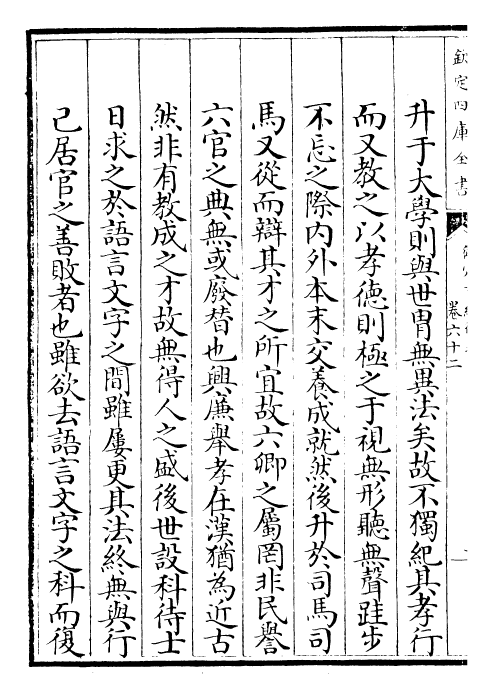 欽定四庫全書
卷六十二
升于大學則與世胄無異法矣故不獨紀其孝行
而又教之以孝德則極之于視無形聽無聲跬步
不忘之際内外本末交養成就然後升於司馬司
馬又從而辯其才之所宜故六卿之屬罔非民譽
六官之典無或廢替也興廉舉孝在漢猶為近古
然非有教成之才故無得人之盛後世設科待士
日求之於語言文字之間雖屢更其法終無與行
己居官之善敗者也雖欲去語言文字之科而復